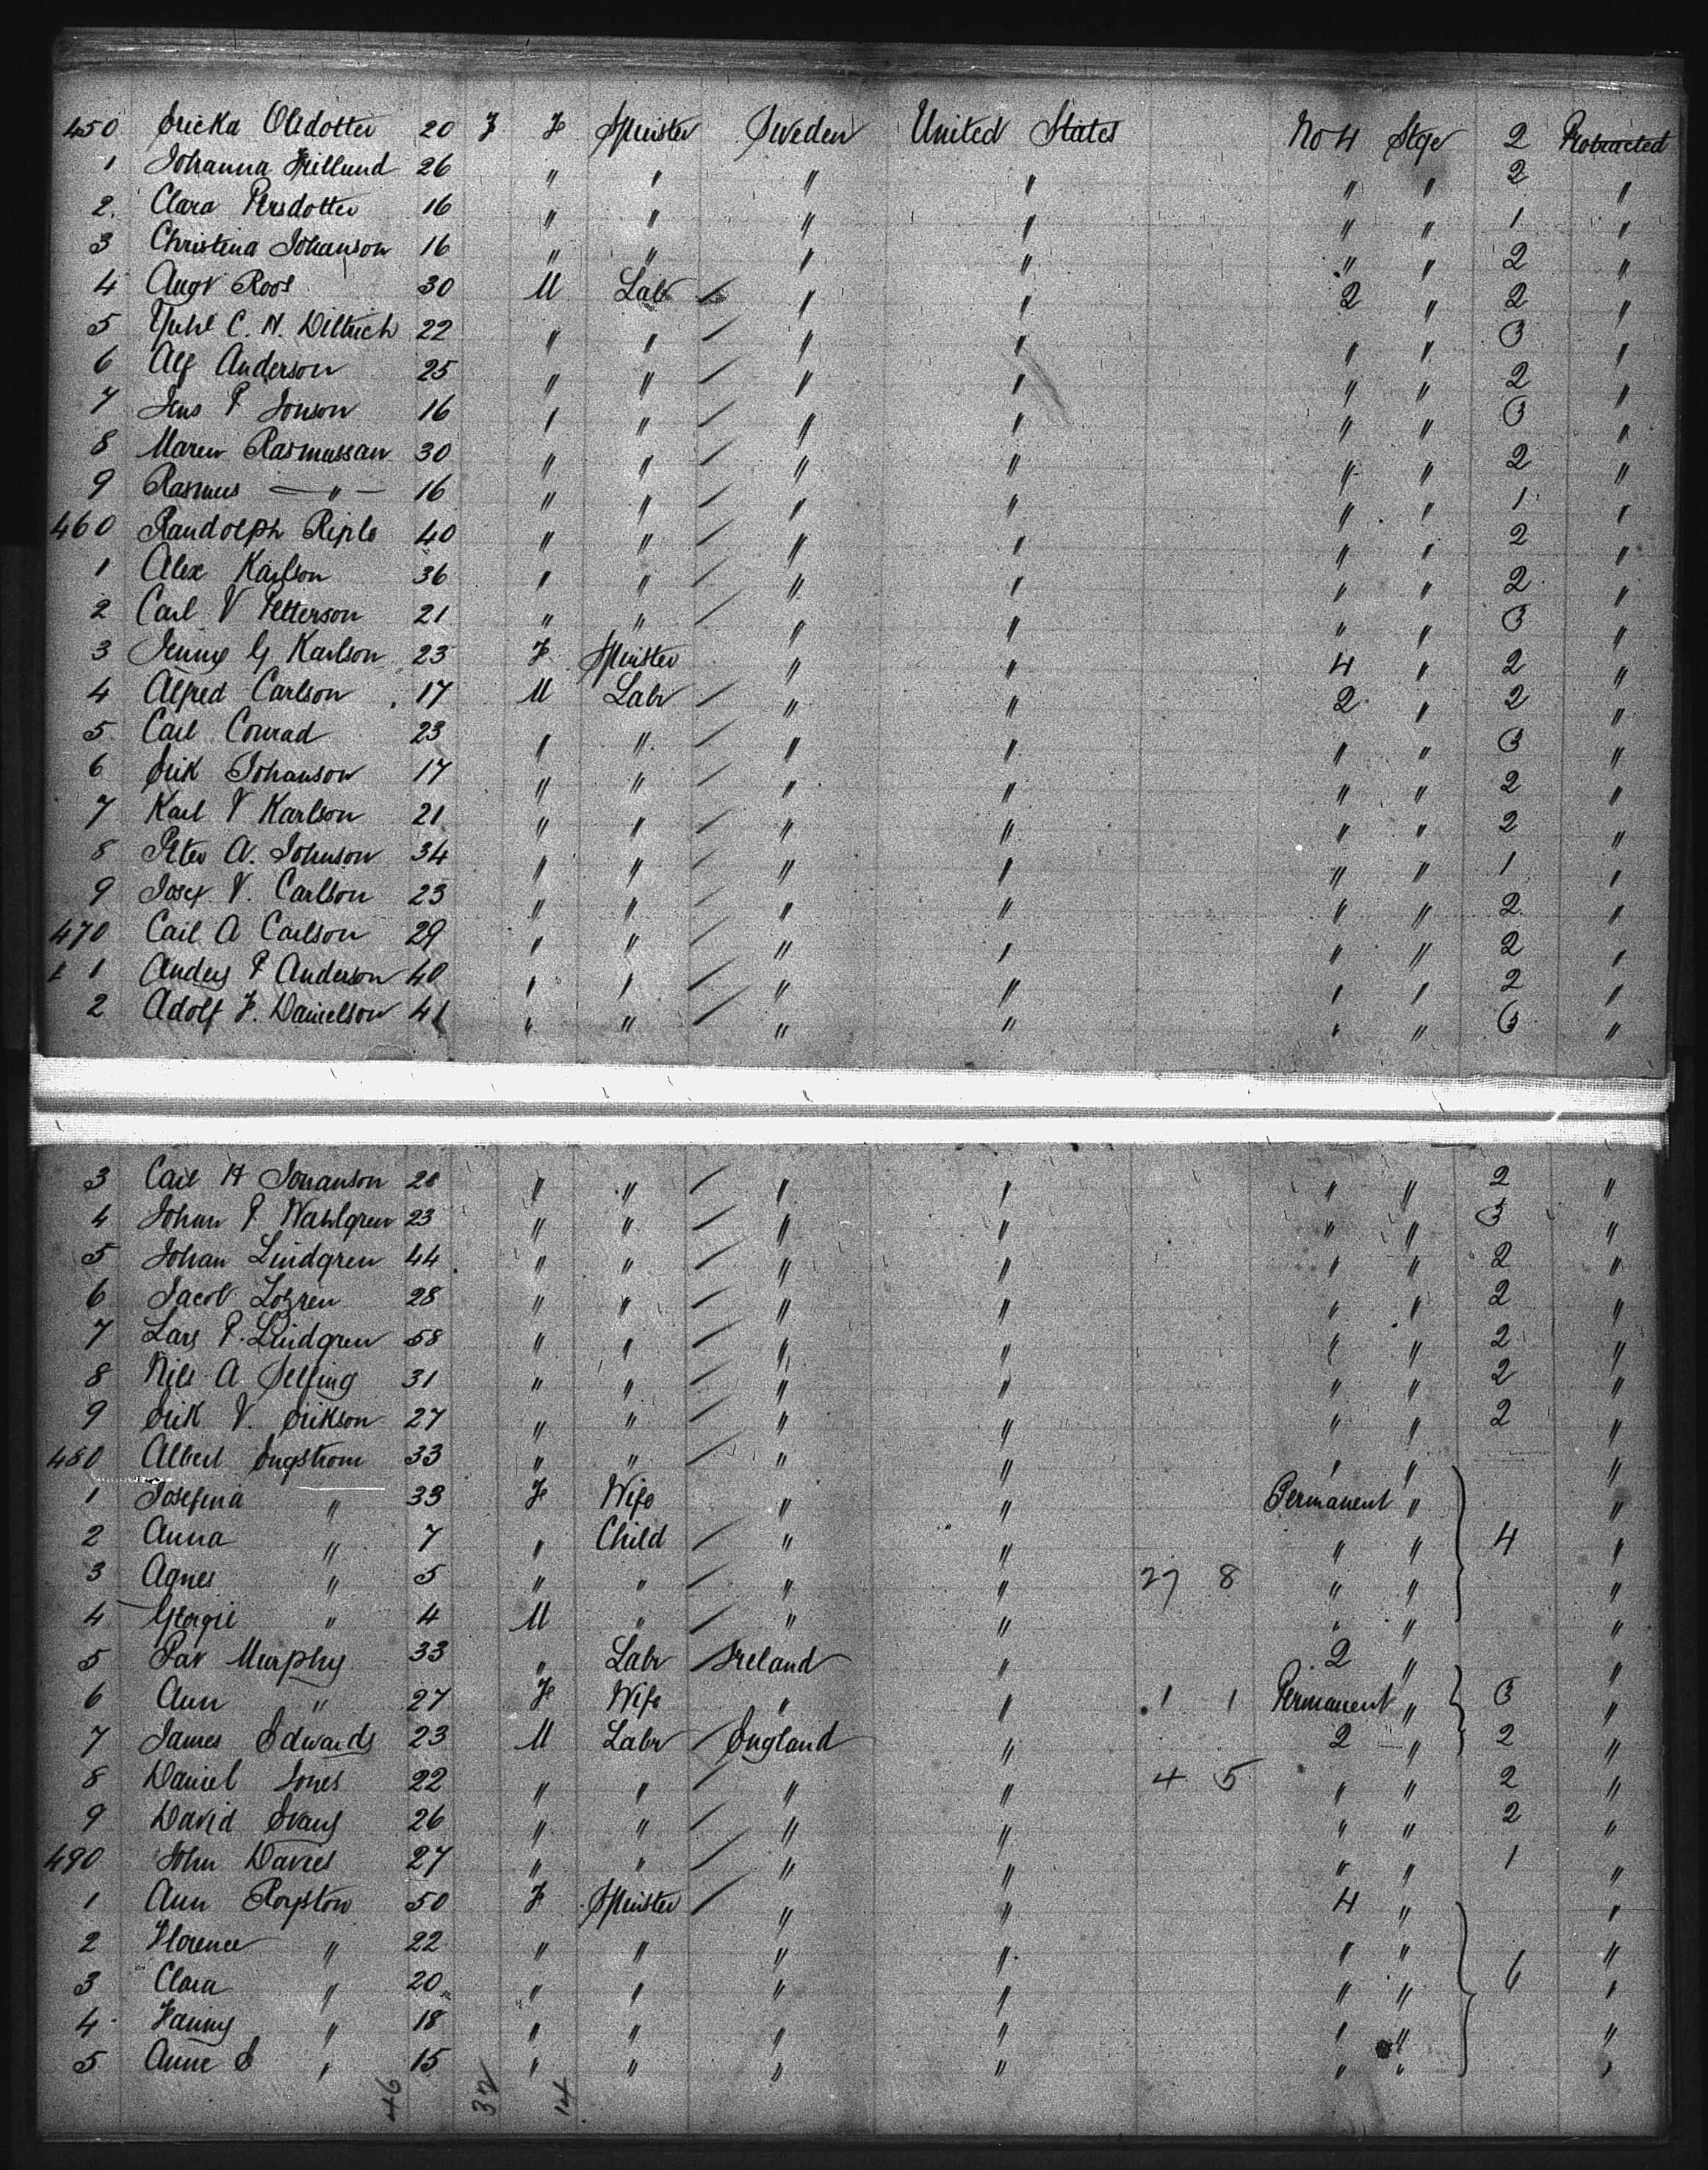 450 Ericka Olsdotter 20 F F Spinster Sweden United States No 4 Stge 2 Protracted
1 Johanna Frillund 26 " " " " " " 2 "
2. Clara Persdotter 16 " " " " " " 1 "
3 Christina Johanson 16 " " " " " " 2 "
4 Augt Roos 30 M Labr / " " 2 " 2 "
5 C. H. Dittrich 22 " " / " " " " 3 "
6 Alf Anderson 25 " " / " " " " 2 "
7 Jens P Jonson 16 " " / " " " " 3 "
8 Maren Rasmussan 30 " " / " " " " 2 "
9 Rasmus — " — 16 " " / " " " " 1 "
460 Randolph Riplo 40 " " / " " " " 2 "
1 Alex Karlson 36 " " / " " " " 2 "
2 Carl V Petterson 21 " " / " " " " 3 "
3 Jenny G Karlson 23 F Spinster " " 4 " 2 "
4 Alfred Carlson 17 M Labr / " " 2 " 2 "
5. Carl Conrad 23 " " / " " " " 3 "
6 Erik Johanson 17 " " / " " " " 2 "
7 Karl V Karlson 21 " " / " " " " 2 "
8 Peter A. Johnson 34 " " / " " " " 1 "
9 Josef V. Carlson 23 " " / " " " " 2 "
470 Carl A Carlson 29 " " / " " " " 2 "
1 Anders P Anderson 40 " " / " " " " 2 "
2 Adolf F. Danielson 41 " " / " " " " 3 "
3 Carl H Johanson " " / " " " " 2 "
4 Johan P. Wahlgren 23 " " / " " " " 3 "
5 Johan Lindgren 44 " " / " " " " 2 "
6 Jacob 28 " " / " " " " 2 "
7 Lars P. Lindgren 58 " " / " " " " 2 "
8 Nils A Selling 31 " " / " " " " 2 "
9 Erik V. Erikson 27 " " / " " " " 2 "
480 Albert Engstrom 33 " " / " " " " "
1 Josefina " 33 F Wife " " Permanent " "
2 Anna " 7 " Child / " " " " 4 "
3 Agnes " 5 " " / " " 27 8 " " "
4 Georgie " 4 M " / " " " " "
5 Pat Murphy 33 " Labr / Ireland " 2 " "
6 Ann " 27 F Wife " " 1 1 Permanent " 3 "
7 James Edwards 23 M Labr / England " 2 " 2 "
8 Daniel Jones 22 " " / " " 4 5 " " 2 "
9 David Evans 26 " " / " " " " 2 "
490 John Davies 27 " " / " " " " 1 "
1 Ann Royston 50 F Spinster / " " 4 " "
2 Florence " 22 " " " " " " "
3 Clara " 20 " " " " " " 6 "
4 Fanny " 18 " " " " " " "
5 Anne E " 15 " " " " " " "
46 32 14